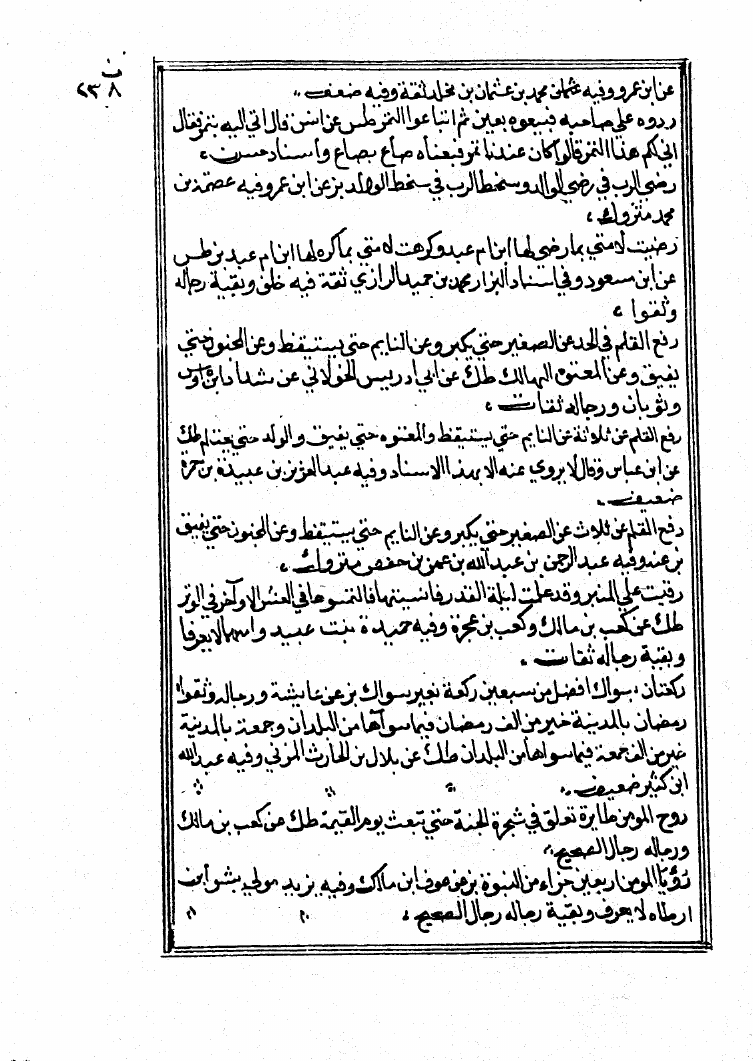 ن
٢٣٨
عن ابن عمرو وفيه عثمان محمد بن عثمان بن مخلد ثقة وفيه ضعف
ردوه على صاحبه فبيعوه بعين ثم ابتاعوا التمر طس عن انس قال اتي اليه بتمر فقال
اني لكم هذا التمر قالوا كان عندنا تمر فبعناه صاع بصاع وأسناد حسن
رضى الرب في رضى الوالد وسخط الرب في سخط الوالد بز عن ابن عمرو فيه عصمة بن
محمد متروك
رضيت لامتي بما رضى لها ابن ام عبد وكرهت لامتي بما كره لها ابن ام عبد بز طس
عن ابن مسعود وفي اسناد البزار محمد بن حميد الرازي ثقة فيه خلق وبقية رجاله
وثقوا
رفع القلم في الحد عن الصغير حتي يكبر وعن النايم حتي يستيقظ وعن المجنون حتي
يفيق وعن المعتوه الهالك طك عن ابي ادريس الخولاني عن شداد ابن اوس
وثوبان ورجاله ثقات
رفع القلم عن ثلاثة عن النايم حتي يستيقظ والمعتوه حتي يفيق والولد حتي يعتلم طك
عن ابن عباس وقال لا يروي عنه الا بهذا الاسناد وفيه عبد العزيز بن عبيدة بن حمزة
ضعيف
رفع القلم عن ثلاث عن الصغير حتي يكبر وعن النايم حتي يستيقظ وعن المجنون حتي يفيق
بز عنه وفيه عبد الرحمن بن عبد الله بن عمر بن حفص متروك
رقيت على المنبر وقد علمت ليلة القدر فانسيتها فالتمسوها في العشر الاواخر في الوتر
طك عن كعب بن مالك وكعب بن عجرة وفيه حميدة بنت عبيد وامها لا يعرفا
وبقية رجاله ثقات
ركعتان بسواك افضل من سبعين ركعة بغير سواك بز عن عايشة ورجاله وثقوا
رمضان بالمدينة خير من الف رمضان فيما سواها من البلدان وجمعة بالمدينة
خير من الف جمعة فيما سواها من البلدان طك عن بلال بن الحارث المزني وفيه عبد الله
ابن كثير ضعيف
روح المومن طايرة تعلق في شجرة الجنة حتي تبعث يوم القيمة طك عن كعب بن مالك
ورجاله رجال الصحيح
رؤيا المومن اربعين جزاء من النبوة بز عن عوف ابن مالك وفيه يزيد مولي بشو ابن
ارطاه لا يعرف وبقية رجاله رجال الصحيح